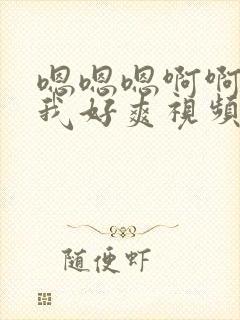 嗯嗯嗯啊啊
我好爽視頻
随便虾